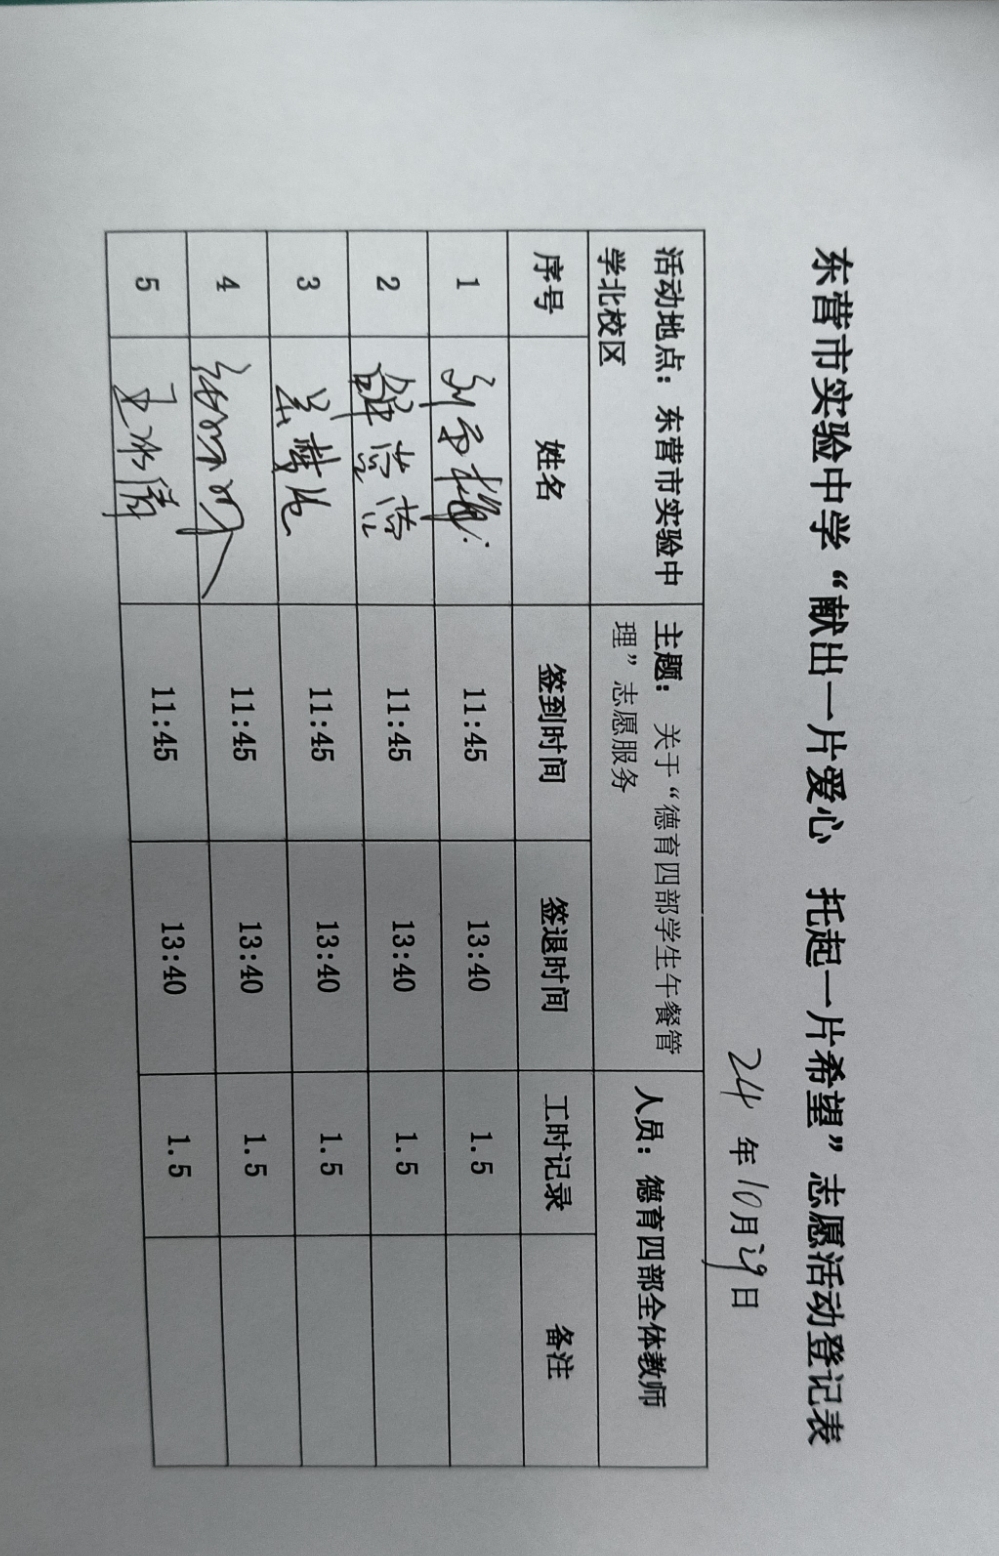 东营市实验中学“献出一片爱心 托起一片希望”志愿活动登记表
24年10月29日
活动地点：东营市实验中学北校区 主题： 关于“德育四部学生午餐管理”志愿服务 人员：德育四部全体教师
序号 姓名 签到时间 签退时间 工时记录 备注
1 11:45 13:40 1.5
2 11:45 13:40 1.5
3 11:45 13:40 1.5
4 11:45 13:40 1.5
5 11:45 13:40 1.5